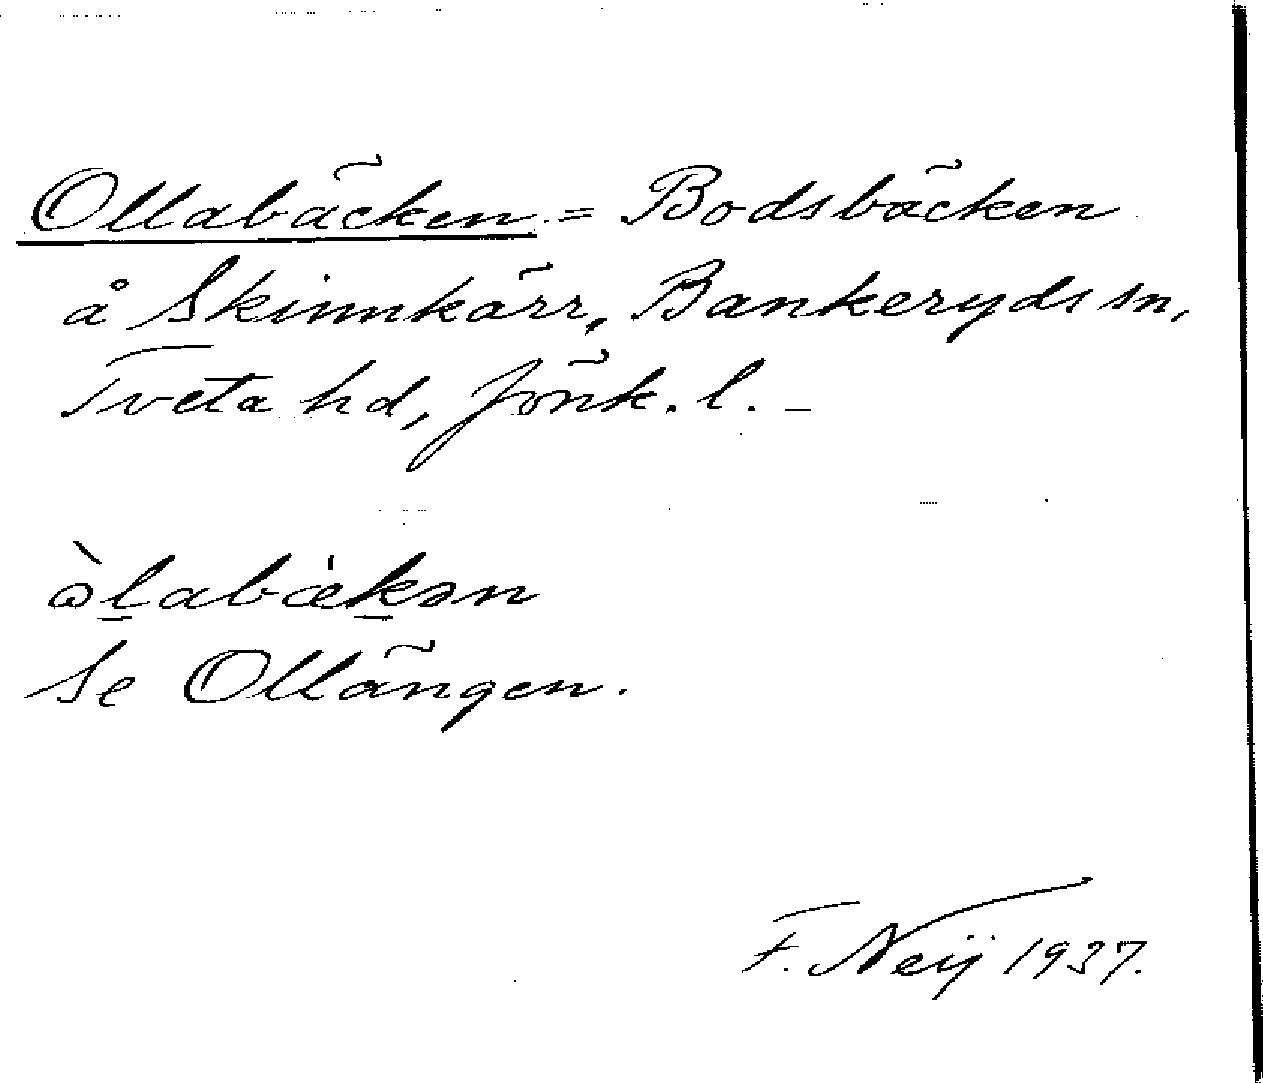 Ollabäcken = Bodsbäcken
å Skinnkärr, Bankeryds sn,
Tveta hd, Jönk. l. –
ὼlabækən
Se Ollängen.
F. Neij 1937.